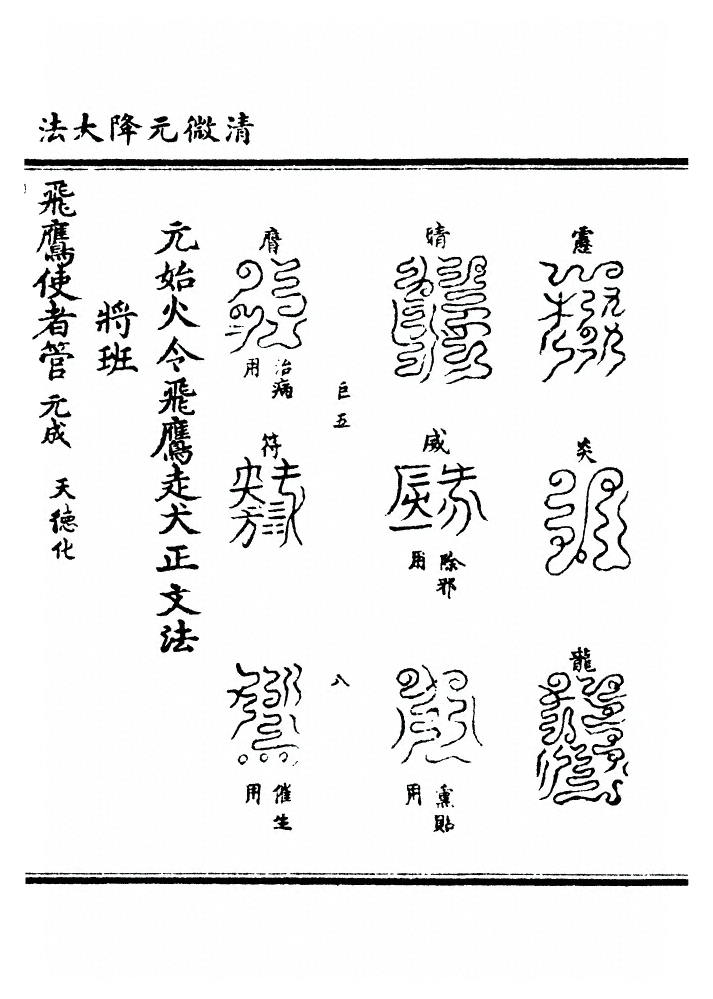 清微元降大法
靈
炎
龍
婧
威
除邪
用
熏貼
用
巨五
八
膺
治病
用
符
催生
用
元始火令飛鷹走犬正文法
將班
飛鷹使者管元成 天德化